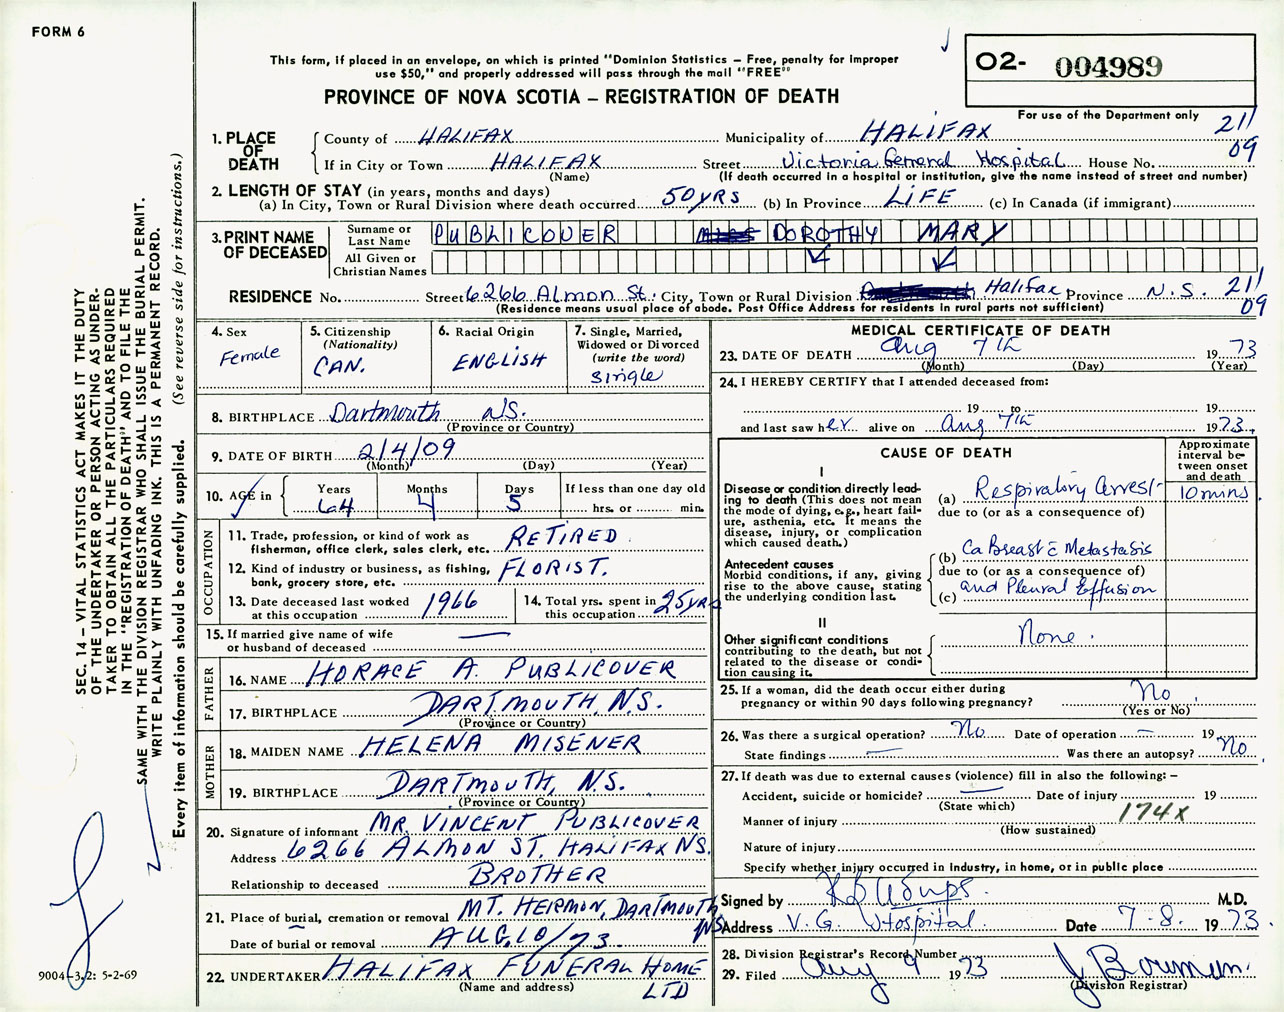 FORM 6
This form, if placed in an envelope, on which is printed "Dominion Statistics – Free, penalty for improper
use $50," and properly addressed will pass through the mail "FREE"
O2- 004989
PROVINCE OF NOVA SCOTIA – REGISTRATION OF DEATH
For use of the Department only
211
09
1. PLACE OF DEATH County of HALIFAX Municipality of HALIFAX
If in City or Town HALIFAX Street Victoria General Hospital House No.
(Name) (If death occurred in a hospital or institution, give the name instead of street and number)
2. LENGTH OF STAY (in years, months and days)
(a) In City, Town or Rural Division where death occurred 50 YRS (b) In Province LIFE (c) In Canada (if immigrant)
3. PRINT NAME OF DECEASED Surname or Last Name PUBLICOVER DOROTHY MARY
All Given or Christian Names
RESIDENCE No. Street 6266 Almon St. City, Town or Rural Division Halifax Province N.S. 211
09
(Residence means usual place of abode. Post Office Address for residents in rural parts not sufficient)
4. Sex
Female
5. Citizenship
(Nationality)
CAN.
6. Racial Origin
ENGLISH
7. Single, Married,
Widowed or Divorced
(write the word)
single
8. BIRTHPLACE Dartmouth N.S.
(Province or Country)
9. DATE OF BIRTH 2/4/09
(Month) (Day) (Year)
10. AGE in Years Months Days If less than one day old
64 4 5 hrs. or min.
OCCUPATION
11. Trade, profession, or kind of work as
fisherman, office clerk, sales clerk, etc. RETIRED
12. Kind of industry or business, as fishing,
bank, grocery store, etc. FLORIST.
13. Date deceased last worked
at this occupation 1966
14. Total yrs. spent in
this occupation 25 yrs
15. If married give name of wife
or husband of deceased —
FATHER
16. NAME HORACE A. PUBLICOVER
17. BIRTHPLACE DARTMOUTH, N.S.
(Province or Country)
MOTHER
18. MAIDEN NAME HELENA MISENER
19. BIRTHPLACE DARTMOUTH, N.S.
(Province or Country)
20. Signature of informant MR. VINCENT PUBLICOVER
Address 6266 ALMON ST. HALIFAX N.S.
Relationship to deceased BROTHER
21. Place of burial, cremation or removal MT. HERMON, DARTMOUTH
NS
Date of burial or removal AUG. 10/73
22. UNDERTAKER HALIFAX FUNERAL HOME
(Name and address) LTD
MEDICAL CERTIFICATE OF DEATH
23. DATE OF DEATH Aug 7th 1973
(Month) (Day) (Year)
24. I HEREBY CERTIFY that I attended deceased from:
19 to 19
and last saw her alive on Aug 7th 1973.
CAUSE OF DEATH
Approximate
interval be-
tween onset
and death
I
Disease or condition directly lead-
ing to death (This does not mean
the mode of dying, e.g., heart fail-
ure, asthenia, etc. It means the
disease, injury, or complication
which caused death.)
(a) Respiratory Arrest 10 mins.
due to (or as a consequence of)
Antecedent causes
Morbid conditions, if any, giving
rise to the above cause, stating
the underlying condition last.
(b) Ca Breast c̄ Metastasis
due to (or as a consequence of)
(c) and Pleural Effusion
II
Other significant conditions
contributing to the death, but not
related to the disease or condi-
tion causing it.
None.
25. If a woman, did the death occur either during
pregnancy or within 90 days following pregnancy? No
(Yes or No)
26. Was there a surgical operation? No Date of operation — 19
State findings — Was there an autopsy? No
27. If death was due to external causes (violence) fill in also the following: –
Accident, suicide or homicide? — Date of injury 19
(State which)
174X
Manner of injury
(How sustained)
Nature of injury
Specify whether injury occurred in industry, in home, or in public place
Signed by M.D.
Address V.G. Hospital Date 7-8. 1973.
28. Division Registrar's Record Number
29. Filed Aug 9 1973 J Bowman
(Division Registrar)
SEC. 14 – VITAL STATISTICS ACT MAKES IT THE DUTY
OF THE UNDERTAKER OR PERSON ACTING AS UNDER-
TAKER TO OBTAIN ALL THE PARTICULARS REQUIRED
IN THE "REGISTRATION OF DEATH" AND TO FILE THE
SAME WITH THE DIVISION REGISTRAR WHO SHALL ISSUE THE BURIAL PERMIT.
WRITE PLAINLY WITH UNFADING INK. THIS IS A PERMANENT RECORD.
Every item of information should be carefully supplied. (See reverse side for instructions.)
9004-3.2: 5-2-69